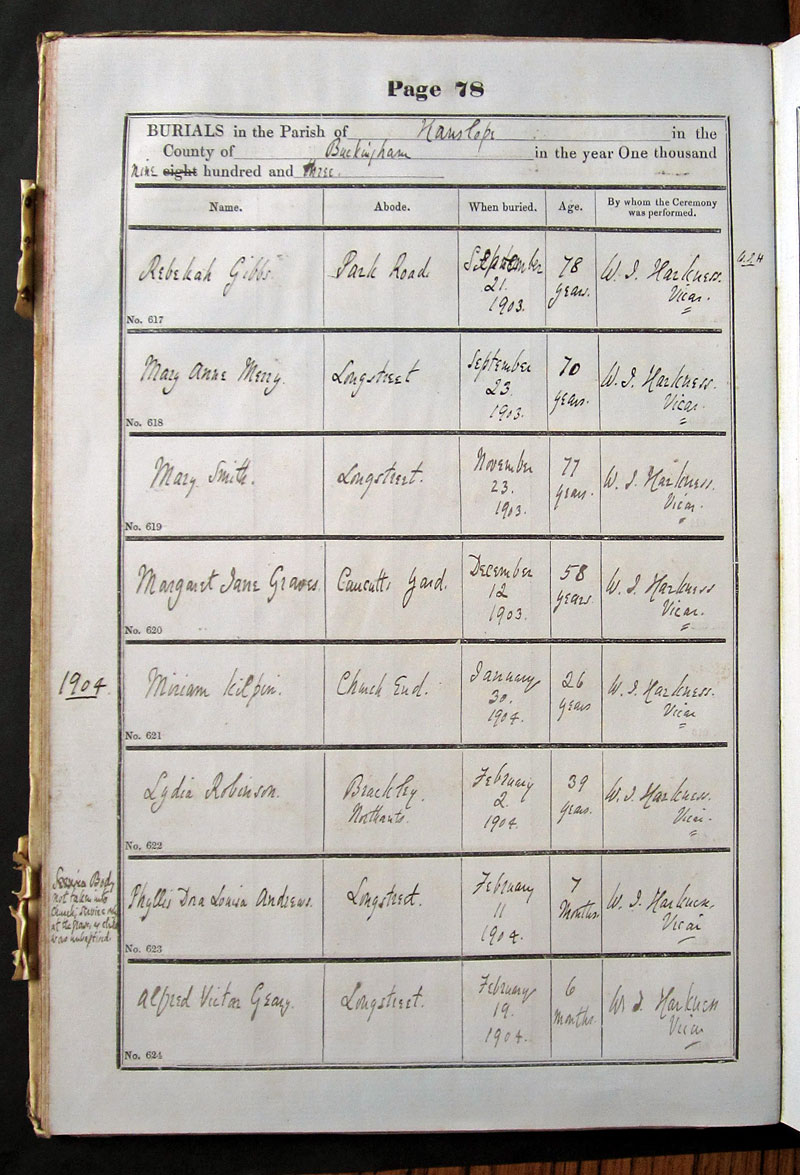 Page 78
BURIALS in the Parish of Hanslope in the
County of Buckingham in the year One thousand
nine eight hundred and three.
Name. Abode. When buried. Age. By whom the Ceremony was performed.
Rebekah Gibbs. Park Road September 78 W. J. Harkness.
21. years. Vicar.
1903.
No. 617
Mary Anne Merry. Longstreet September 70 W. J. Harkness.
23. years. Vicar.
1903.
No. 618
Mary Smith. Longstreet. November 77 W. J. Harkness.
23. years. Vicar.
1903.
No. 619
Margaret Jane Graves. Caucutts Yard. December 58 W. J. Harkness
12 years. Vicar.
1903.
No. 620
1904.
Miriam Kilpin. Church End. January 26 W. J. Harkness.
30. years Vicar
1904.
No. 621
Lydia Robinson. Brackley. February 39 W. J. Harkness.
Northants. 2. years. Vicar.
1904.
No. 622
Body
not taken into
Church; Service only
at the grave, as child
was unbaptised.
Phyllis Dra Louisa Andrews. Longstreet. February 7 W. J. Harkness.
11 Months Vicar
1904.
No. 623
Alfred Victor Geary. Longstreet. February 6 W. J. Harkness
19. months. Vicar
1904.
No. 624